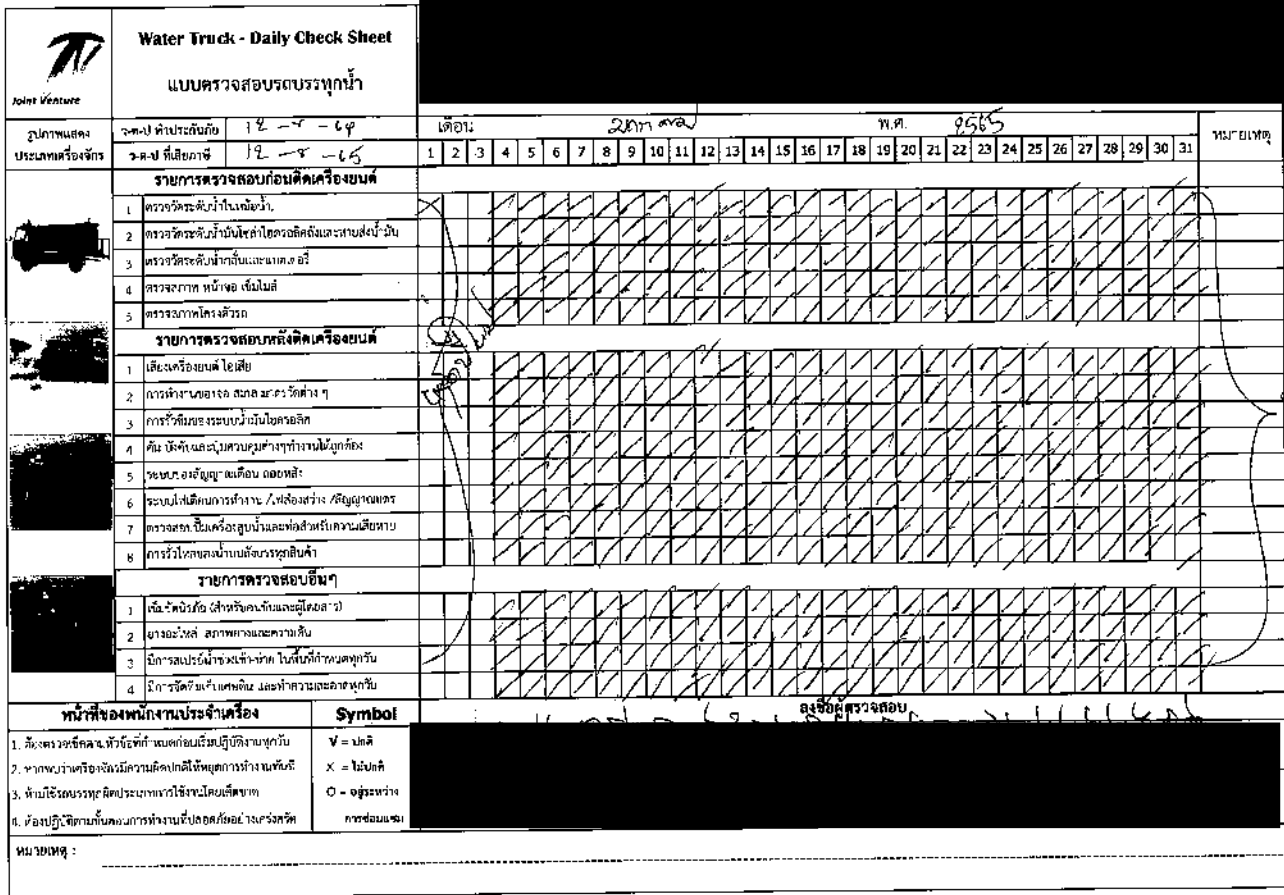 Water Truck - Daily Check Sheet
แบบตรวจสอบรถบรรทุกน้ำ
Joint Venture
รูปภาพแสดง
ประเภทเครื่องจักร
ว-ด-ป ทำประกันภัย
ว-ด-ป ที่เสียภาษี
เดือน มกราคม พ.ศ. 2565
หมายเหตุ
1 2 3 4 5 6 7 8 9 10 11 12 13 14 15 16 17 18 19 20 21 22 23 24 25 26 27 28 29 30 31
รายการตรวจสอบก่อนติดเครื่องยนต์
1 ตรวจวัดระดับน้ำในหม้อน้ำ
2 ตรวจวัดระดับน้ำมันโซล่าไฮดรอลิคถังและสายส่งน้ำมัน
3 ตรวจวัดระดับน้ำกลั่นและแบตเตอรี่
4 ตรวจสภาพ หน้าจอ เข็มไมล์
5 ตรวจสภาพโครงตัวรถ
รายการตรวจสอบหลังติดเครื่องยนต์
1 เสียงเครื่องยนต์ ไอเสีย
2 การทำงานของจอ มาตรวัดต่าง ๆ
3 การรั่วซึมของระบบน้ำมันไฮดรอลิค
4 คันบังคับและปุ่มควบคุมต่างๆทำงานได้ถูกต้อง
5 ระบบของสัญญาณเตือน ถอยหลัง
6 ระบบไฟเตือนการทำงาน /ไฟส่องสว่าง /สัญญาณแตร
7 ตรวจสอบปั๊มเครื่องสูบน้ำและท่อสำหรับความเสียหาย
8 การรั่วไหลของน้ำบนถังบรรทุกสินค้า
รายการตรวจสอบอื่นๆ
1 เข็มขัดนิรภัย (สำหรับคนขับและผู้โดยสาร)
2 ยางอะไหล่ สภาพยางและความดัน
3 มีการสเปรย์น้ำช่วงเช้า-บ่าย ในพื้นที่กำหนดทุกวัน
4 มีการจัดเก็บเศษดิน และทำความสะอาดทุกวัน
ลงชื่อผู้ตรวจสอบ
หน้าที่ของพนักงานประจำเครื่อง
Symbol
1. ต้องตรวจเช็คตามหัวข้อที่กำหนดก่อนเริ่มปฏิบัติงานทุกวัน
V = ปกติ
2. หากพบว่าเครื่องจักรมีความผิดปกติให้หยุดการทำงานทันที
X = ไม่ปกติ
3. ห้ามใช้รถบรรทุกผิดประเภทการใช้งานโดยเด็ดขาด
O = อยู่ระหว่าง
4. ต้องปฏิบัติตามขั้นตอนการทำงานที่ปลอดภัยอย่างเคร่งครัด
การซ่อมแซม
หมายเหตุ :